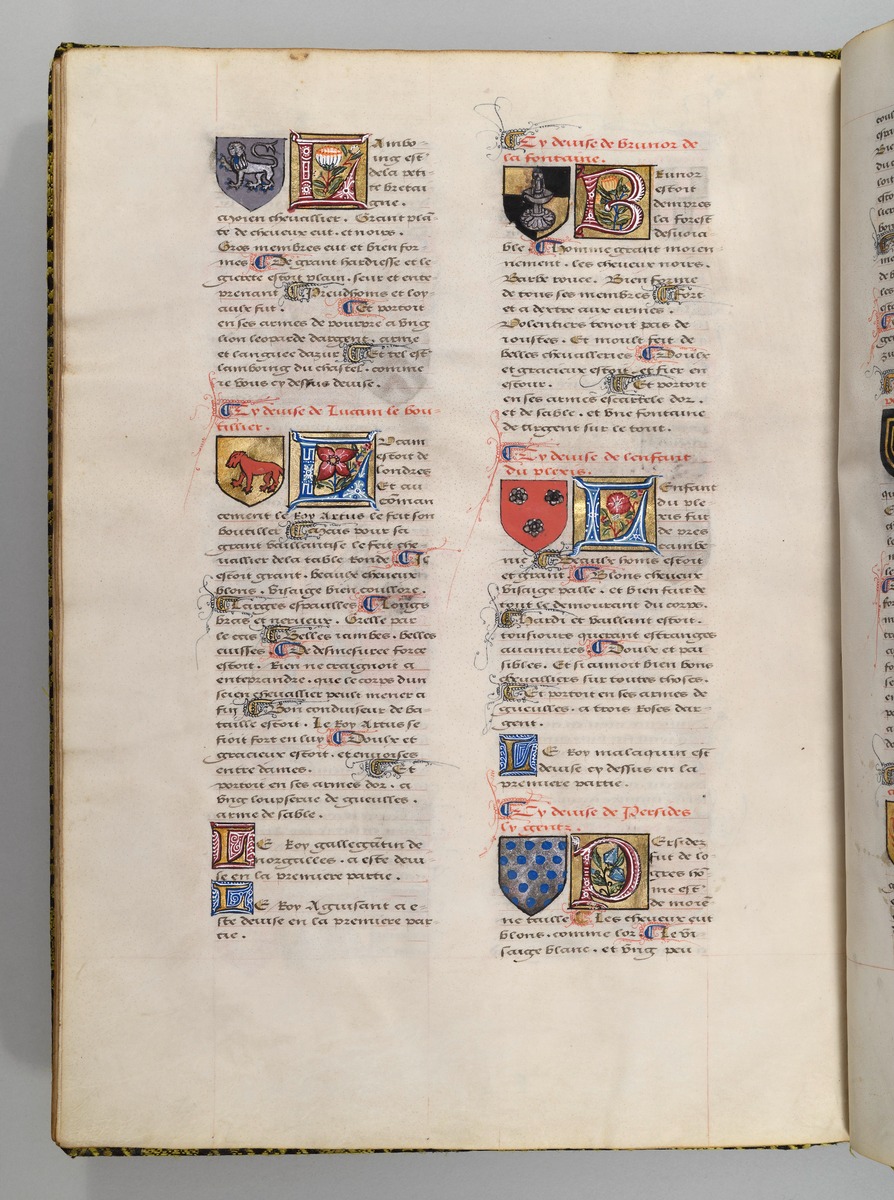 Lambo
ing est
dela peti
te bretai
gne.
moien cheuallier. Grant plā
te de cheueux eut. et noirs.
Gros membres eut et bien for
mes De grant hardiesse et le
gierete estoit plain. seur et ente
prenant Preudhoms et loy
aulx fut. Et portoit
en ses armes de pourpre a vng
lion leoparde dargent. arme
et langue dazur Et tel est
lamboing du chastel. comme
ie vous cy dessus deuise.
Cy deuise de Lucam le bou
tillier.
Lucam
estoit de
londres
Et au
cōman
cement le Roy Artus le feit son
boutillier Mais pour sa
grant vaillantise le feit che
uallier dela table Ronde Il
estoit grant. beaulx cheueux
blons. Visaige bien coulloré.
Larges espaulles Longs
bras et nerueux. Grelle par
le cors Belles iambes. belles
cuisses De desmesuree force
estoit. Rien ne craignoit a
enteprandre. que le corps dun
seul cheuallier peust mener a
fin Bon conduiseur de ba
taille estoit. Le Roy Artus se
fioit fort en luy Doulx et
gracieux estoit. et enuoises
entre dames. Et
portoit en ses armes dor. a
vng loupseruie de gueulles.
arme de sable.
LE Roy gallegātin de
norgalles. a este deui
se en la premiere partie.
LE Roy Aguisant a e
ste deuise en la premiere par
tie.
Cy deuise de brunor de
la fontaine.
Brunor
estoit
dempres
la forest
desuoia
ble. Homme grant moien
nement. les cheueux noirs.
Barbe rouce. Bien forme
de tous ses membres Fort
et a dextre aux armes.
Volentiers tenoit pas de
ioustes. Et moult feit de
belles cheualleries Doulx
et gracieux estoit. et fier en
estour. Et portoit
en ses armes escartele dor.
et de sable. et vne fontaine
de largent sur le tout.
Cy deuise de lenfant
du plexis.
LEnfant
du ple
xis fut
de pres
cambe
nic Beaulx homs estoit
et grant Blons cheueux
visaige palle. et bien fait de
tout le demourant du corps.
Hardi et vaillant estoit.
tousiours querant estranges
auantures Doulx et pai
sibles. Et si amoit bien bons
cheualliers sur toutes choses.
Et portoit en ses armes de
gueulles. a trois Roses dar
gent.
LE Roy malaquin est
deuise cy dessus en la
premiere partie.
Cy deuise de Persides
ly gentz.
Persidez
fut de lo
gres hō
me est
de moiē
ne taille Les cheueux eut
blons. comme lor. Le vi
saige blanc. et vng peu